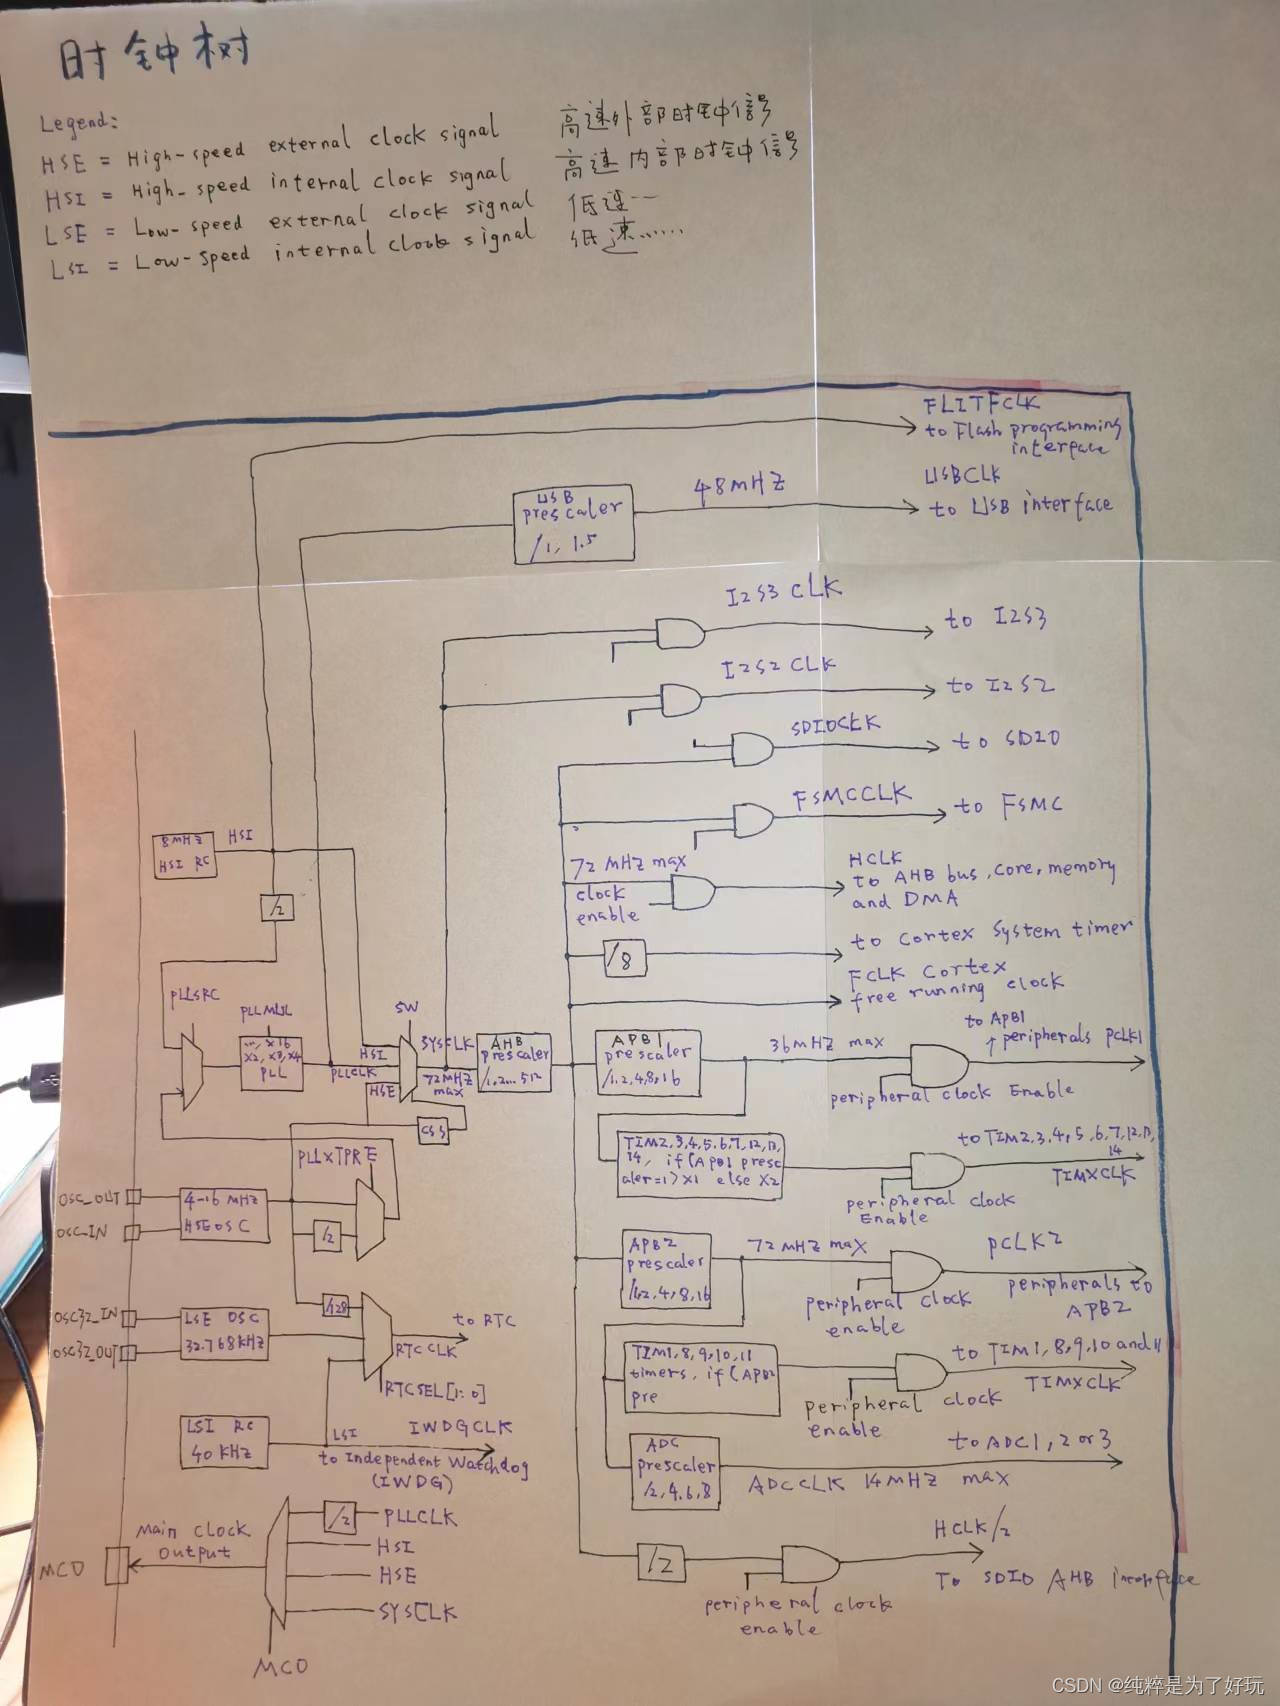 时钟树
Legend:
HSE = High-speed external clock signal 高速外部时钟信号
HSI = High-speed internal clock signal 高速内部时钟信号
LSE = Low-speed external clock signal 低速...
LSI = Low-speed internal clock signal 低速......
FLITFCLK
to Flash programming
interface
USB
prescaler
/1, 1.5
48MHZ
USBCLK
to USB interface
I2S3 CLK
to I2S3
I2S2 CLK
to I2S2
SDIOCLK
to SDIO
FSMCCLK
to FSMC
8MHZ
HSI RC
HSI
/2
72 MHZ max
clock
enable
HCLK
to AHB bus, core, memory
and DMA
/8
to Cortex System timer
FCLK Cortex
free running clock
PLLSRC
PLLMUL
..., x16
x2, x3, x4
PLL
SW
HSI
PLLCLK
HSE
SYSCLK
72MHZ
max
AHB
prescaler
/1,2...512
CSS
APB1
prescaler
/1,2,4,8,16
36MHZ max
to APB1
peripherals PCLK1
peripheral clock Enable
TIM2,3,4,5,6,7,12,13,
14, if(APB1 presc
aler=1)x1 else x2
to TIM2,3,4,5,6,7,12,13,
14
TIMXCLK
peripheral clock
Enable
PLLXTPRE
OSC_OUT
OSC_IN
4-16 MHZ
HSEOSC
/2
APB2
prescaler
/1,2,4,8,16
72MHZ max
PCLK2
peripherals to
APB2
peripheral clock
enable
OSC32_IN
OSC32_OUT
LSE OSC
32.768KHZ
/128
to RTC
RTCCLK
RTCSEL[1:0]
TIM1,8,9,10,11
timers, if(APB2
pre
to TIM1,8,9,10 and 11
TIMXCLK
peripheral clock
enable
LSI RC
40KHZ
LSI
IWDGCLK
to Independent Watchdog
(IWDG)
ADC
prescaler
/2,4,6,8
to ADC1,2 or 3
ADCCLK 14MHZ max
MCO
Main Clock
Output
/2
PLLCLK
HSI
HSE
SYSCLK
MCO
/2
HCLK/2
To SDIO AHB
peripheral clock
enable
CSDN @纯粹是为了好玩